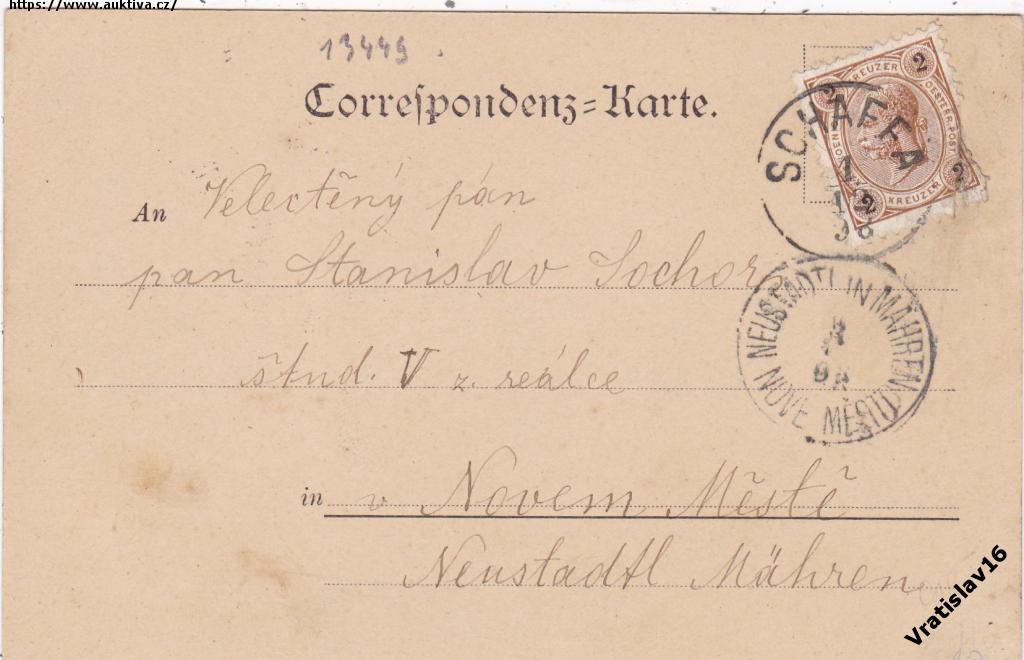 https://www.auktiva.cz/
13449
Correspondenz=Karte.
2 KREUZER
OESTERR·POST
KREUZER
2
2
SCHAFFA
An Velectěný pán
pan Stanislav Sochor
NEUSTADTL IN MÄHREN
NOVÉ MĚSTO
štud. V z. reálce
in v Novem Městě
Neustadtl Mähren
Vratislav16